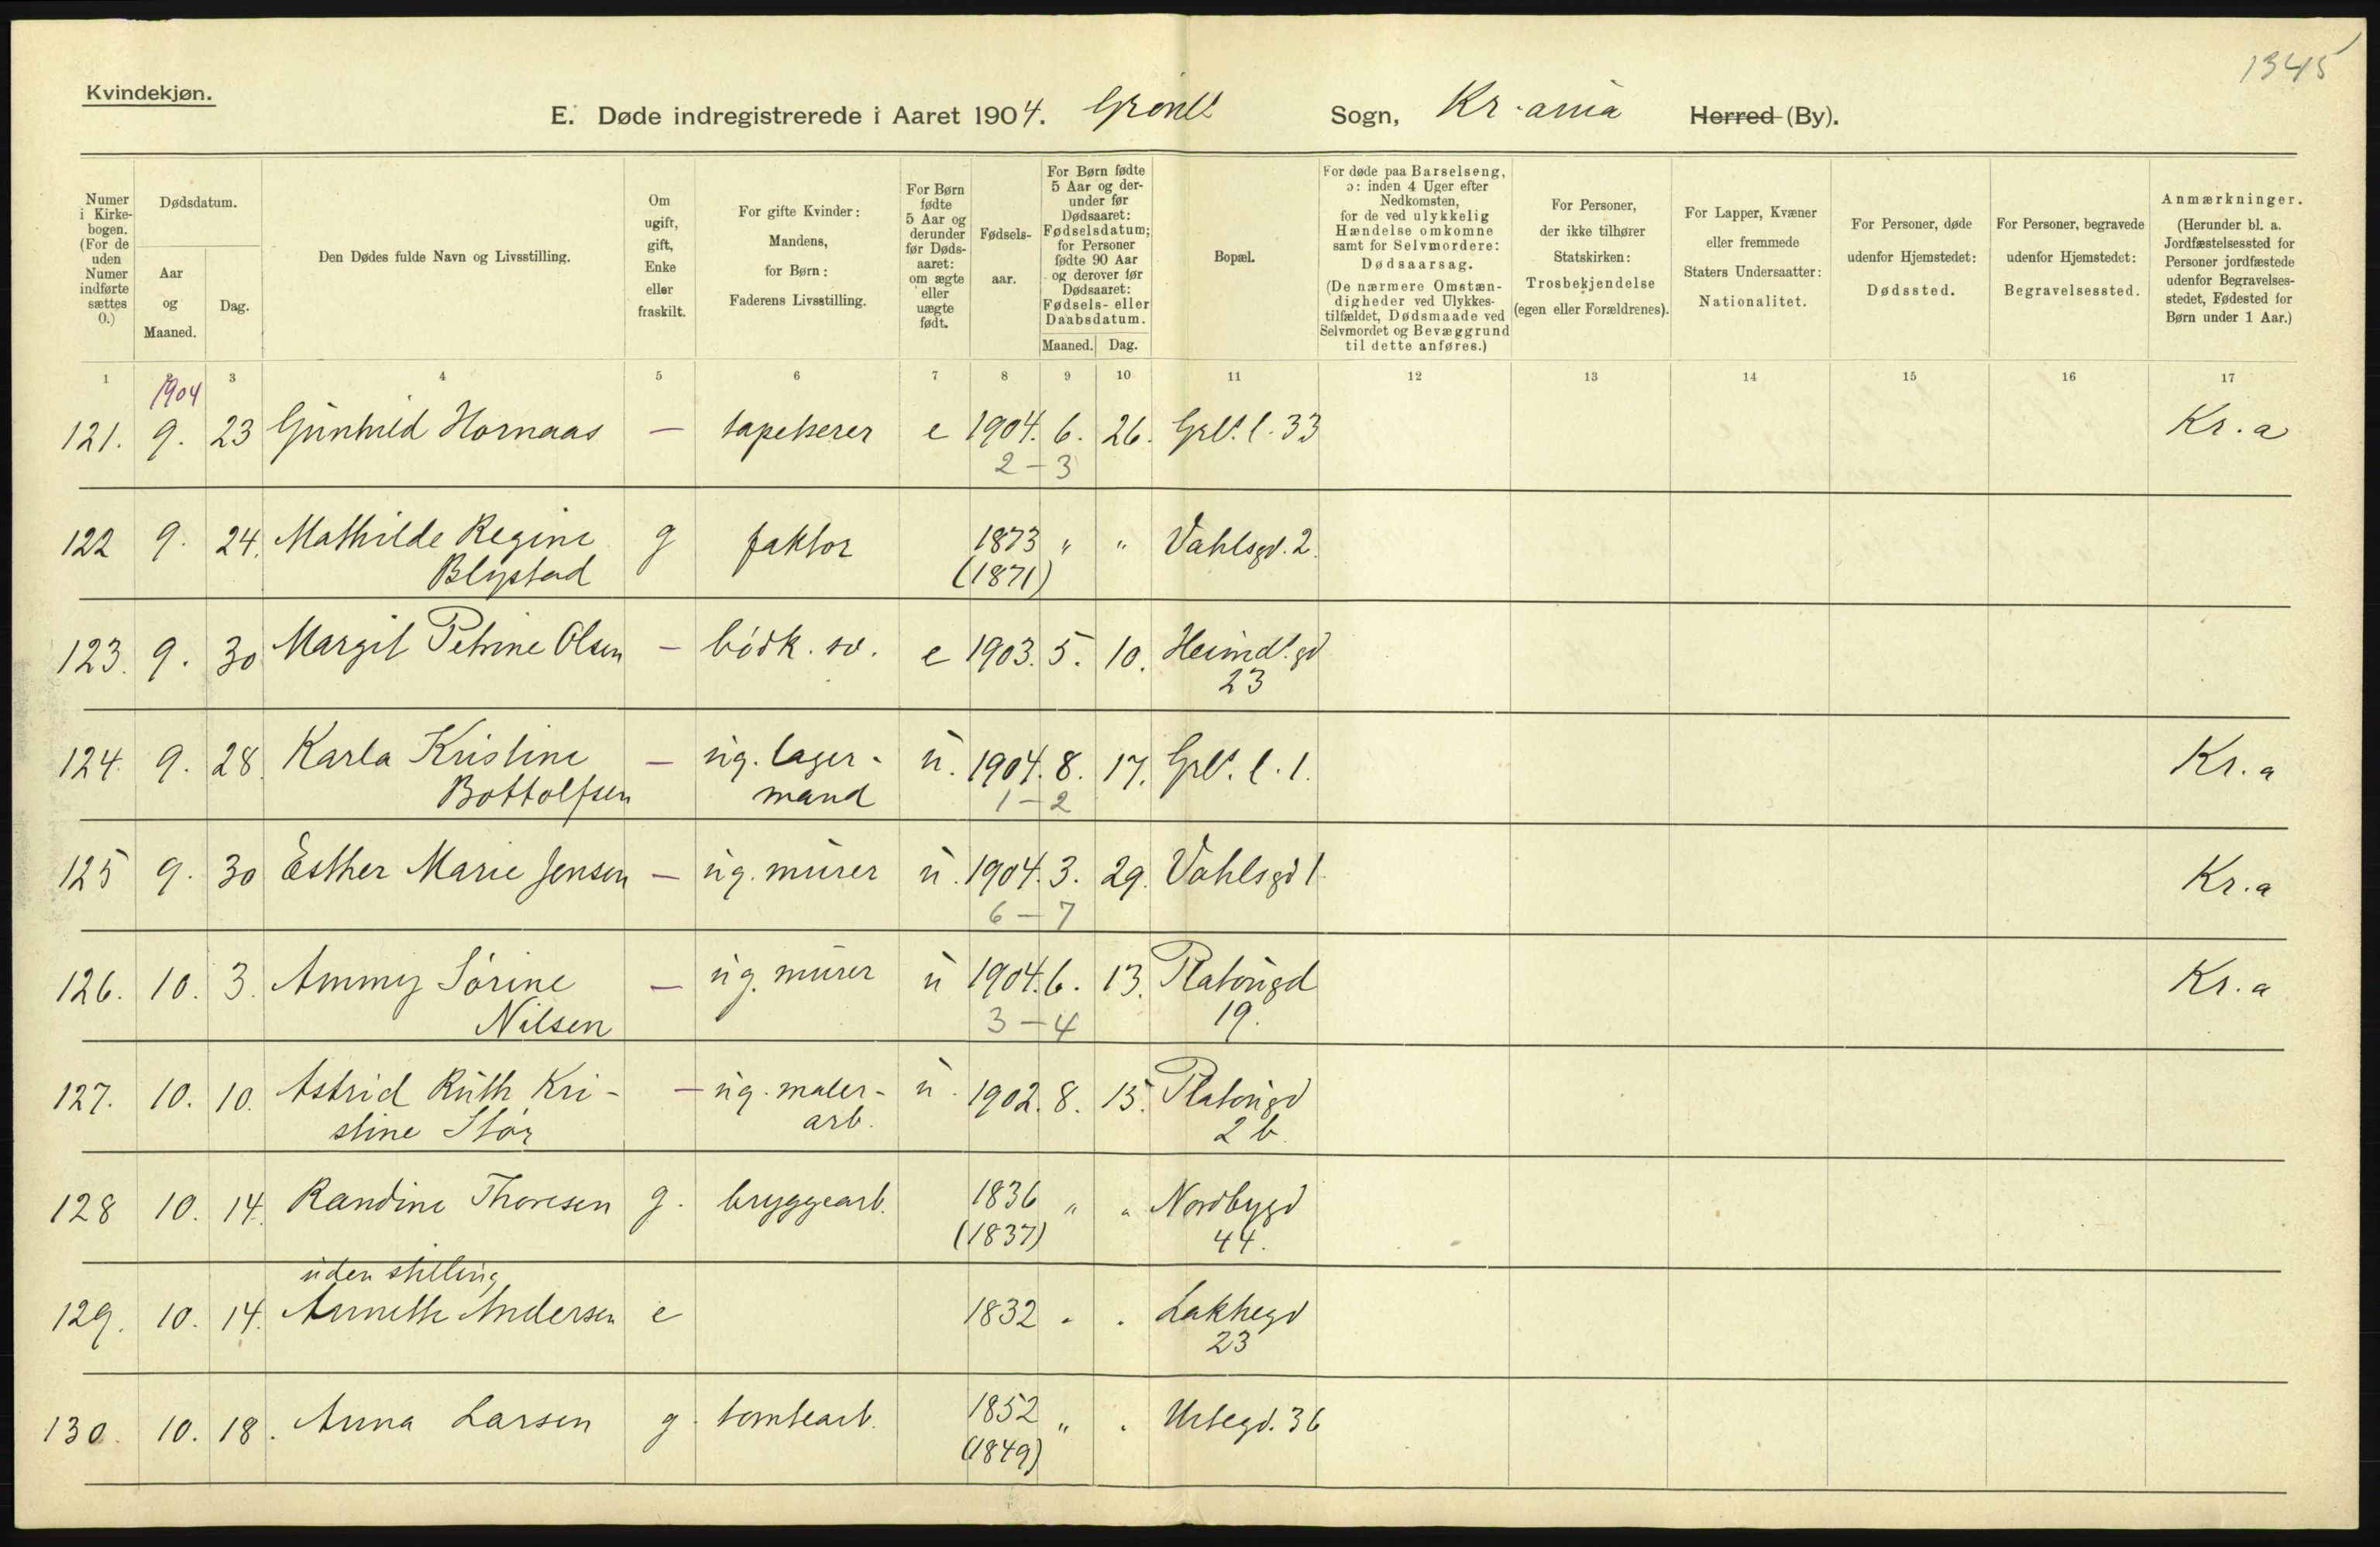 1345
Kvindekjøn.
E. Døde indregistrerede i Aaret 1904. Grønld Sogn, Kr.ania Herred (By).
Numer i Kirkebogen. (For de uden Numer indførte sættes 0.)
Dødsdatum.
Aar og Maaned.
Dag.
Den Dødes fulde Navn og Livsstilling.
Om ugift, gift, Enke eller fraskilt.
For gifte Kvinder: Mandens, for Børn: Faderens Livsstilling.
For Børn fødte 5 Aar og derunder før Dødsaaret: om ægte eller uægte født.
Fødselsaar.
For Børn fødte 5 Aar og derunder før Dødsaaret: Fødselsdatum; for Personer fødte 90 Aar og derover før Dødsaaret: Fødsels- eller Daabsdatum.
Maaned. Dag.
Bopæl.
For døde paa Barselseng, ɔ: inden 4 Uger efter Nedkomsten, for de ved ulykkelig Hændelse omkomne samt for Selvmordere: Dødsaarsag. (De nærmere Omstændigheder ved Ulykkestilfældet, Dødsmaade ved Selvmordet og Bevæggrund til dette anføres.)
For Personer, der ikke tilhører Statskirken: Trosbekjendelse (egen eller Forældrenes).
For Lapper, Kvæner eller fremmede Staters Undersaatter: Nationalitet.
For Personer, døde udenfor Hjemstedet: Dødssted.
For Personer, begravede udenfor Hjemstedet: Begravelsessted.
Anmærkninger. (Herunder bl. a. Jordfæstelsessted for Personer jordfæstede udenfor Begravelsesstedet, Fødested for Børn under 1 Aar.)
1 2 3 4 5 6 7 8 9 10 11 12 13 14 15 16 17
1904
121. 9. 23 Gunhild Hornaas — tapetserer e 1904. 6. 26. Grld. l. 33 Kr.a
2 – 3
122 9. 24. Mathilde Regine g faktor 1873 " " Vahlsgd. 2.
Blystad (1871)
123. 9. 30 Margit Petrine Olsen — bødk. sv. e 1903. 5. 10. Heimd. gd
23
124. 9. 28. Karla Kristine — ug. lager- u. 1904. 8. 17. Grld. l. 1. Kr.a
Bottolfsen mand 1 – 2
125 9. 30 Esther Marie Jensen — ug. murer u. 1904. 3. 29. Vahlsgd 1. Kr.a
6 – 7
126. 10. 3. Ammy Sørine — ug. murer u 1904. 6. 13. Platougd Kr.a
Nilsen 3 – 4 19.
127. 10. 10. Astrid Ruth Kri- — ug. maler- u. 1902. 8. 15. Platougd
stine Stør arb. 2 b.
128 10. 14. Randine Thoresen g. bryggearb. 1836 " " Nordbygd
(1837) 44.
uden stilling
129. 10. 14. Annette Andersen e 1832 " " Lakkegd
23
130. 10. 18. Anna Larsen g. tomtearb. 1852 " " Urtegd. 36
(1849)